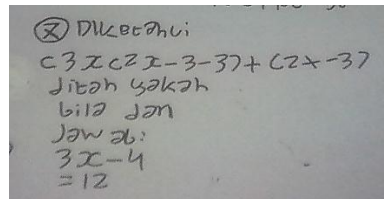 ⑦ Diketahui
(3x(2x-3-3)+(2x-3)
ditanyakan
bila dan
Jawab:
3x-4
=12